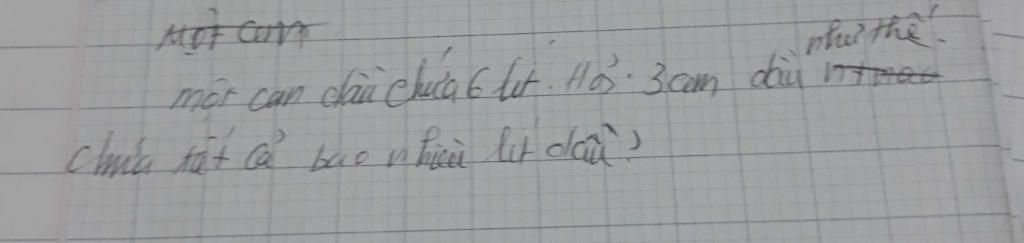 Một can
một can dầu chứa 6 lít. Hỏi 3 can dầu như thế
chứa tất cả bao nhiêu lít dầu?